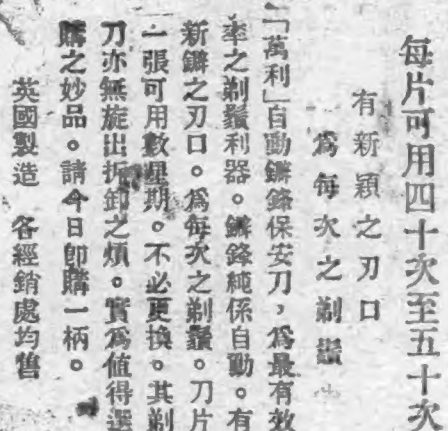 每片可用四十次至五十次
有新穎之刃口
爲每次之剃鬚
「萬利」自動鐮鋒保安刀，爲最有效
率之剃鬚利器。鐮鋒純係自動。有
新鐮之刃口。爲每次之剃鬚。刀片
一張可用數星期。不必更換。其剃
刀亦無旋出拆卸之煩。實爲値得選
購之妙品。請今日卽購一柄。
英國製造　各經銷處均售